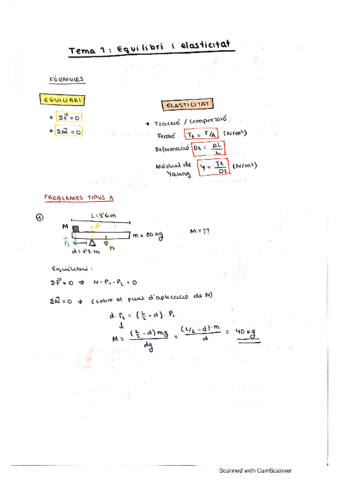 Tema 1: Equilibri i elasticitat
FÓRMULES
EQUILIBRI
* ΣF⃗ = 0
* ΣM⃗ = 0
ELASTICITAT
* Tracció / compressió
Tensió Tt = F/A (N/m²)
Deformació Dt = ΔL/L
Mòdul de Young Y = Tt/Dt (N/m²)
PROBLEMES TIPUS A
① L=3'6m
M N m = 80 kg M = ??
P₂ P₁
d = 1'2 m
Equilibri:
ΣF⃗ = 0 ⇒ N-P₁-P₂ = 0
ΣM⃗ = 0 ⇒ (sobre el punt d'aplicació de N)
d · P₂ = (L/2 - d) · P₁
↓
M = (L/2 - d) mg / dg = (L/2 - d) · m / d = 40 kg
Scanned with CamScanner